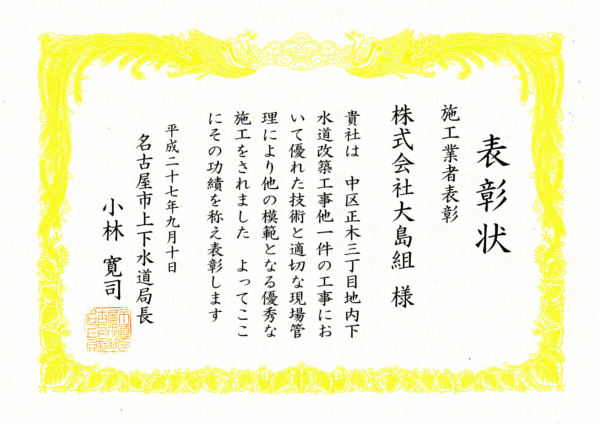 表彰状
施工業者表彰
株式会社大島組 様
貴社は 中区正木三丁目地内下
水道改築工事他一件の工事にお
いて優れた技術と適切な現場管
理により他の模範となる優秀な
施工をされました よってここ
にその功績を称え表彰します
平成二十七年九月十日
名古屋市上下水道局長
小林 寛司